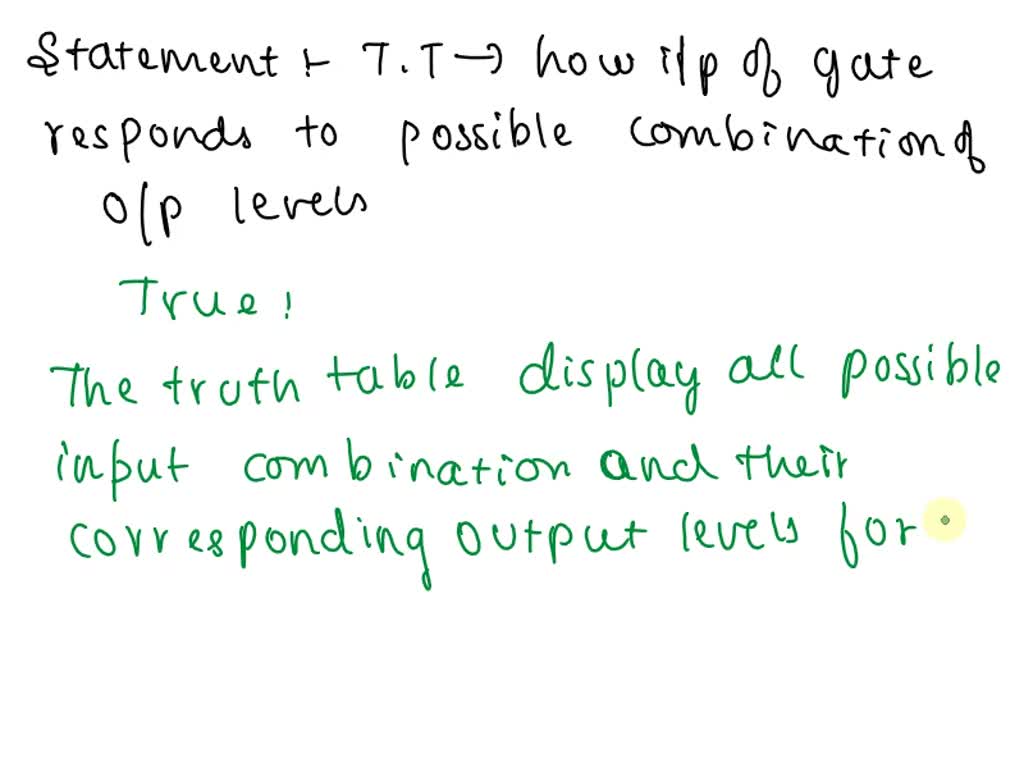 Statement :- T.T → how i/p of gate
responds to possible combination of
o/p levels
True!
The truth table display all possible
input combination and their
corresponding output levels for